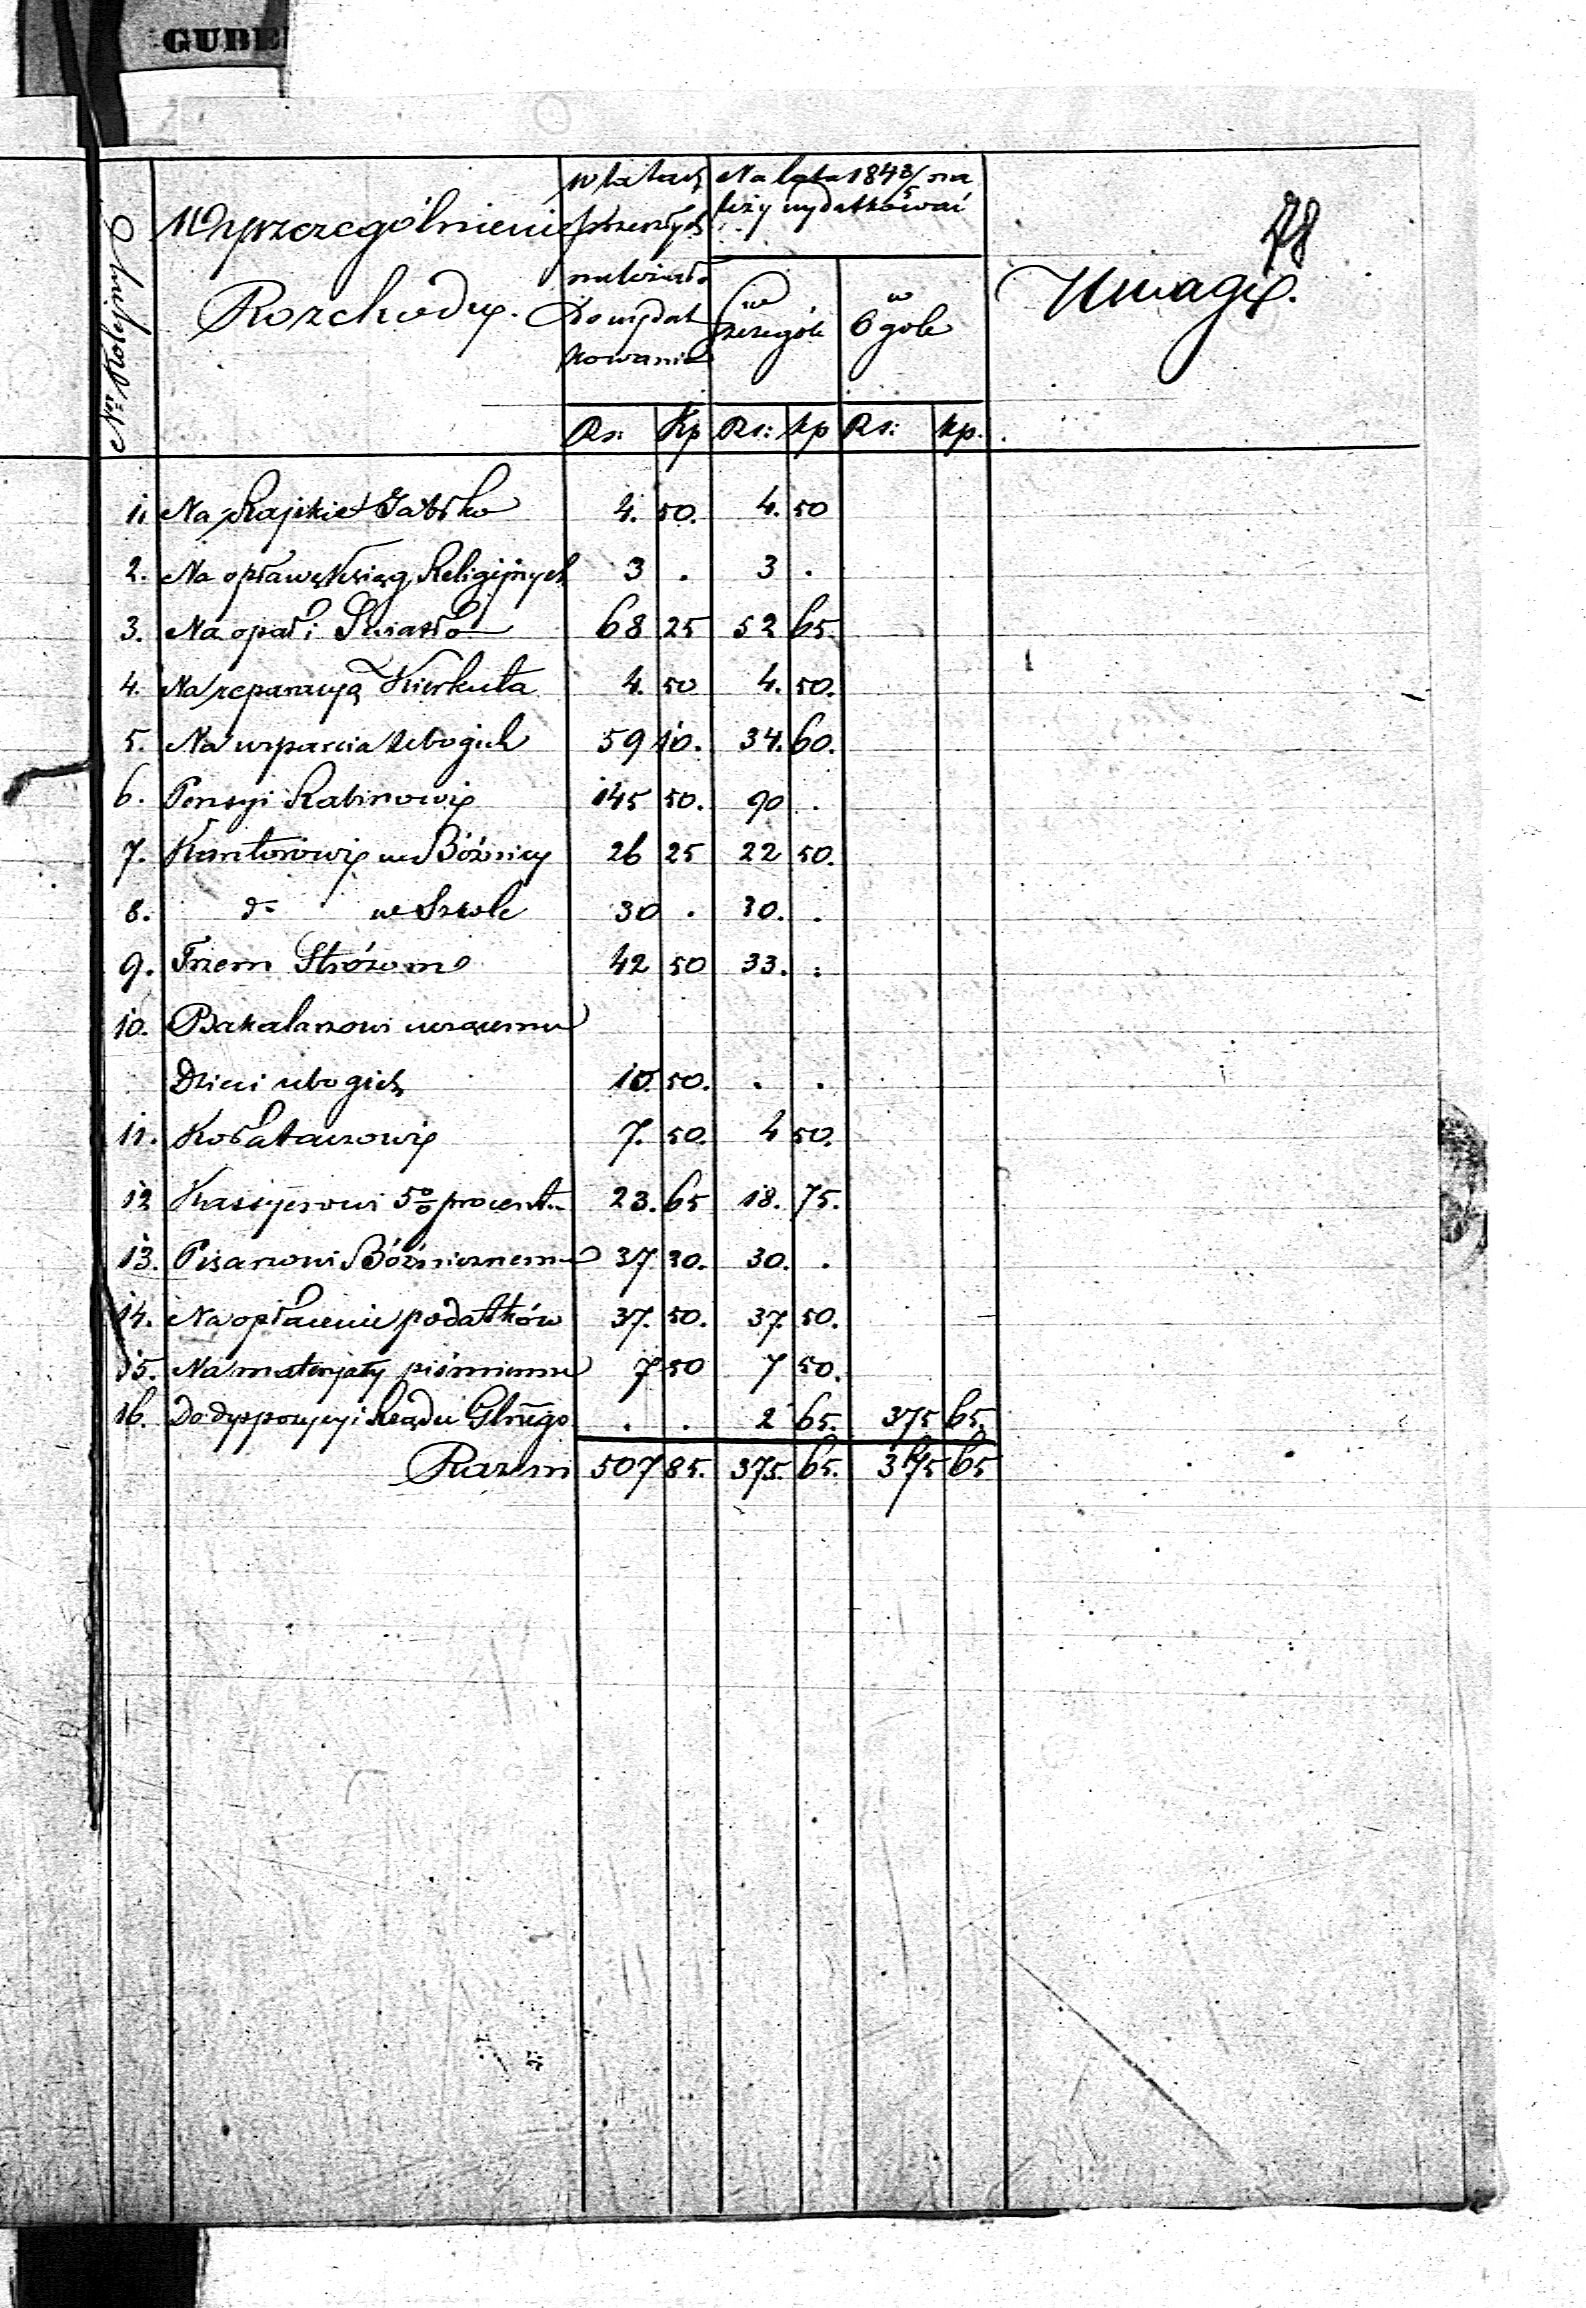 GUBE
78
Nr Kolejny
Wyszczególnienie
Rozchody.
w latach
przeszłych
należało
do wydat
kowania
Na lata 1843/5 na
leży wydatkować
w
szczególe
w
Ogóle
Uwagi.
Rs: Kp Rs: kp Rs: kp.
1. Na Rajskie Jabłko 4. 50. 4. 50
2. Na oprawę Ksiąg Religijnych 3 . 3 .
3. Na opał i Swiatło 68 25 52 65.
4. Na reparacyą Kierkuta 4. 50 4. 50.
5. Na wsparcia Ubogich 59 10. 34. 60.
6. Pensyi Rabinowi 145 50. 90 .
7. Kantorowi w Bóżnicy 26 25 22 50.
8. do w Szkole 30 . 30. .
9. Trzem Stróżom 42 50 33. .
10. Bakałarzowi uczącemu
Dzieci ubogich 10. 50. . .
11. Kołatarzowi 7. 50. 4 50.
12 Kassyerowi 5% procent 23. 65 18. 75.
13. Pisarzowi Bóżnicznemu 37 30. 30. .
14. Na opłacenie podatków 37. 50. 37. 50.
15. Na materyały piśmienne 7 50 7 50.
16. Do dyspozycyi Rządu Głnego . . 2 65. 375 65.
Razem 507 85. 375. 65. 375 65